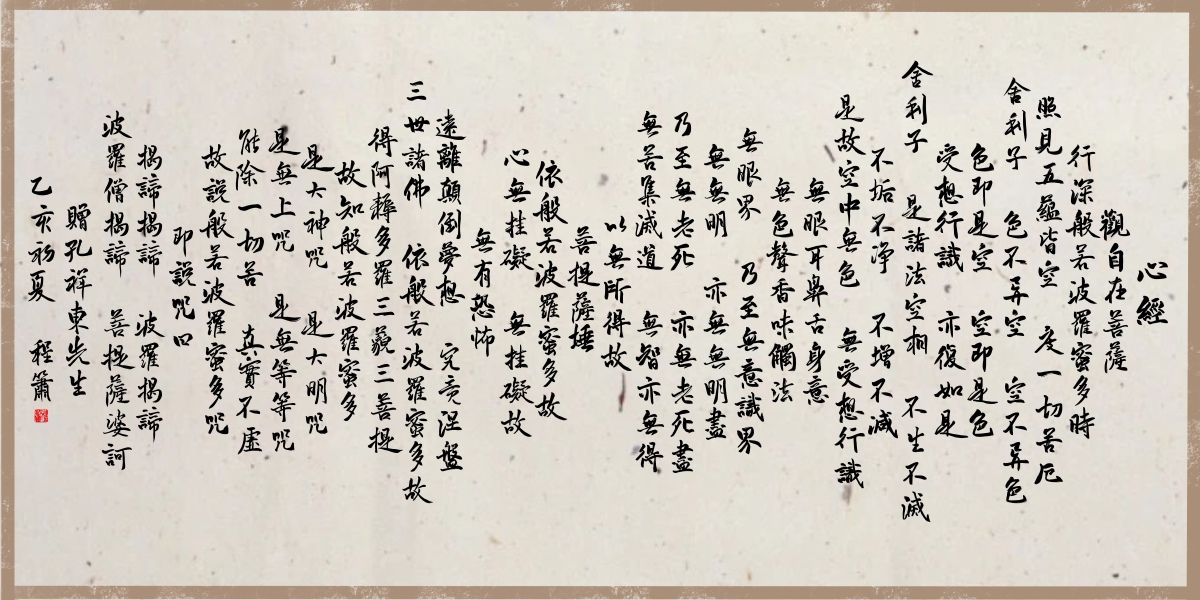 心經
觀自在菩薩
行深般若波羅蜜多時
照見五蘊皆空 度一切苦厄
舍利子 色不异空 空不异色
色即是空 空即是色
受想行識 亦復如是
舍利子 是諸法空相 不生不滅
不垢不净 不增不减
是故空中無色 無受想行識
無眼耳鼻舌身意
無色聲香味觸法
無眼界 乃至無意識界
無無明 亦無無明盡
乃至無老死 亦無老死盡
無苦集滅道 無智亦無得
以無所得故
菩提薩埵
依般若波羅蜜多故
心無挂礙 無挂礙故
無有恐怖
遠離顛倒夢想 究竟涅盤
三世諸佛 依般若波羅蜜多故
得阿耨多羅三藐三菩提
故知般若波羅蜜多
是大神咒 是大明咒
是無上咒 是無等等咒
能除一切苦 真實不虛
故説般若波羅蜜多咒
即説咒曰
揭諦揭諦 波羅揭諦
波羅僧揭諦 菩提薩婆訶
贈孔祥東先生
乙亥初夏 程簫